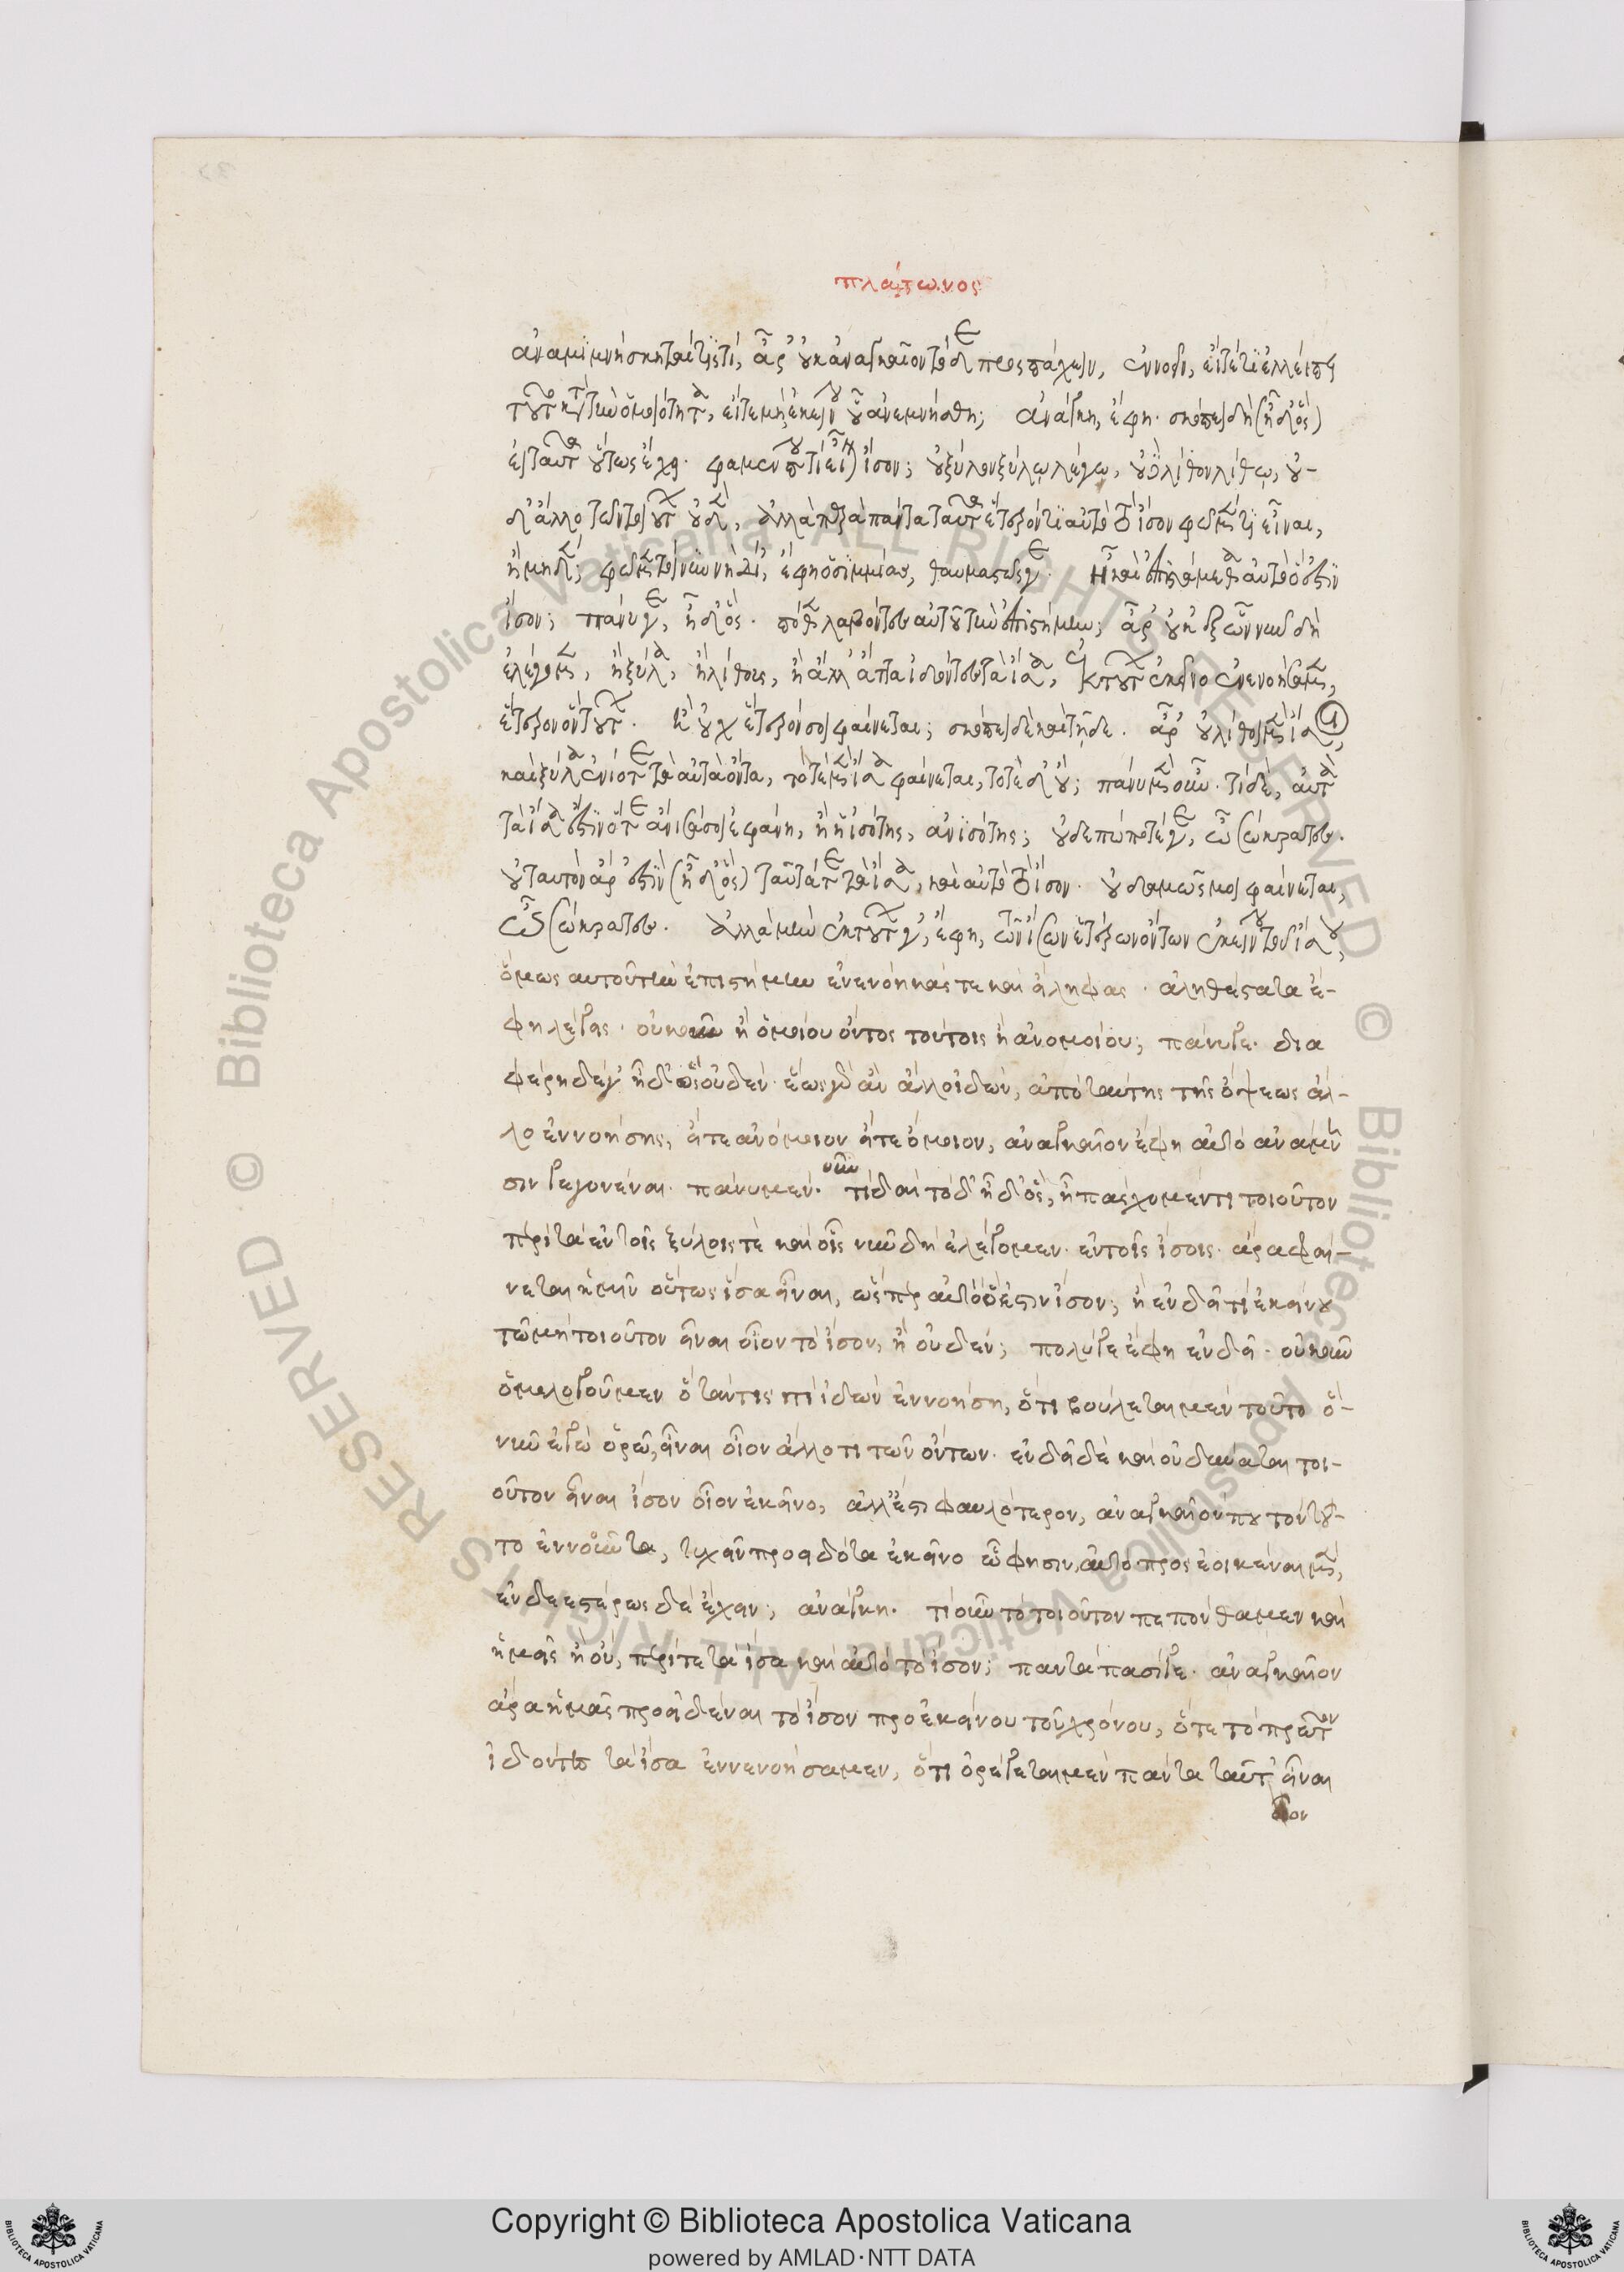 πλάτωνος
ἀναμιμνήσκηταί τίς τι, ἆρ' οὐκ ἀναγκαῖον τόδε προσπάσχειν, ἐννοεῖν, εἴτέ τι ἐλλείπει
τοῦτο κατὰ τὴν ὁμοιότητα, εἴτε μὴ ἐκείνου οὗ ἀνεμνήσθη; ἀνάγκη, ἔφη. σκόπει δὴ (ἦ δ' ὅς)
εἰ ταῦτα οὕτως ἔχει. φαμέν που τὶ εἶναι ἴσον; οὐ ξύλον ξύλῳ λέγω, οὐδὲ λίθον λίθῳ, οὐ-
δ' ἄλλο τῶν τοιούτων οὐδὲν, ἀλλὰ παρὰ πάντα ταῦτα ἕτερόν τι αὐτὸ τὸ ἴσον φῶμέν τι εἶναι,
ἢ μηδέν; φῶμεν τοίνυν νὴ Δί', ἔφη ὁ σιμμίας, θαυμαστῶς γε. Ἦ καὶ ἐπιστάμεθα αὐτὸ ὅ ἐστιν
ἴσον; πάνυ γε, ἦ δ' ὅς. πόθεν λαβόντες αὐτοῦ τὴν ἐπιστήμην; ἆρ' οὐκ ἐξ ὧν νῦν δὴ
ἐλέγομεν, ἢ ξύλα, ἢ λίθους, ἢ ἄλλ' ἄττα ἰδόντες τὰ ἴσα, ἐκ τούτων ἐκεῖνο ἐνενοήσαμεν,
ἕτερον ὂν τούτων. ἢ οὐχ ἕτερόν σοι φαίνεται; σκόπει δὲ καὶ τῇδε. ἆρ' οὐ λίθοι μὲν ἴσοι,
καὶ ξύλα ἐνίοτε τὰ αὐτὰ ὄντα, τότὲ μὲν ἴσα φαίνεται, τοτὲ δ' οὔ; πάνυ μὲν οὖν. τί δὲ, αὐτὰ
τὰ ἴσα ἔστιν ὅτε ἄνισά σοι ἐφάνη, ἢ ἡ ἰσότης, ἀνισότης; οὐδεπώποτέ γε, ὦ σώκρατες.
οὐ ταυτὸν ἄρ' ἐστὶν (ἦ δ' ὅς) ταῦτά τε τὰ ἴσα, καὶ αὐτὸ τὸ ἴσον. οὐδαμῶς μοι φαίνεται,
ὦ σώκρατες. ἀλλὰ μὴν ἐκ τούτων γ', ἔφη, τῶν ἴσων ἑτέρων ὄντων ἐκείνου τοῦ ἴσου,
ὅμως αὐτοῦ τὴν ἐπιστήμην ἐνενόηκάς τε καὶ εἴληφας. ἀληθέστατα ἔ-
φη λέγεις. οὐκοῦν ἢ ὁμοίου ὄντος τούτοις ἢ ἀνομοίου; πάνυ γε. δια
φέρει δέ γ' ἦ δ' ὅς οὐδέν. ἕως γὰρ ἂν ἄλλο ἰδὼν, ἀπὸ ταύτης τῆς ὄψεως ἄλ-
λο ἐννοήσῃς, εἴτε ἀνόμοιον εἴτε ὅμοιον, ἀναγκαῖον ἔφη αὐτὸ ἀνάμνη
σιν γεγονέναι. πάνυ μὲν οὖν. τί δαὶ τόδ' ἦ δ' ὅς, ἦ πάσχομέν τι τοιοῦτον
περὶ τὰ ἐν τοῖς ξύλοις τὲ καὶ οἷς νῦν δὴ ἐλέγομεν. ἐν τοῖς ἴσοις. ἆρα φαί-
νεται ἡμῖν οὕτως ἴσα εἶναι, ὥσπερ αὐτὸ ὅ ἐστιν ἴσον; ἢ ἐνδεῖ τι ἐκείνου
τῶ μὴ τοιοῦτον εἶναι οἷον τὸ ἴσον, ἢ οὐδέν; πολύ γε ἔφη ἐνδεῖ. οὐκοῦν
ὁμολογοῦμεν ὅταν τις τι ἰδὼν ἐννοήσῃ, ὅτι βούλεται μὲν τοῦτο ὃ-
νῦν ἐγὼ ὁρῶ, εἶναι οἷον ἄλλο τι τῶν ὄντων. ἐνδεῖ δὲ καὶ οὐ δύναται τοι-
οῦτον εἶναι ἴσον οἷον ἐκεῖνο, ἀλλ' ἔστι φαυλότερον, ἀναγκαῖόν που τὸν τοῦ-
το ἐννοοῦντα, τυχεῖν προειδότα ἐκεῖνο ᾧ φησιν, αὐτὸ προσεοικέναι μὲν,
ἐνδεεστέρως δὲ ἔχειν; ἀνάγκη. τί οὖν τὸ τοιοῦτον πεπόνθαμεν καὶ
ἡμεῖς ἢ οὐ, περί τε τὰ ἴσα καὶ αὐτὸ τὸ ἴσον; παντάπασί γε. ἀναγκαῖον
ἄρα ἡμᾶς προειδέναι τὸ ἴσον πρὸ ἐκείνου τοῦ χρόνου, ὅτε τὸ πρῶτον
ἰδόντες τὰ ἴσα ἐννενοήσαμεν, ὅτι ὀρέγεται μὲν πάντα ταῦτ' εἶναι
οἷον
© Biblioteca Apostolica Vaticana ALL RIGHTS RESERVED
Copyright © Biblioteca Apostolica Vaticana
powered by AMLAD·NTT DATA
BIBLIOTECA APOSTOLICA VATICANA